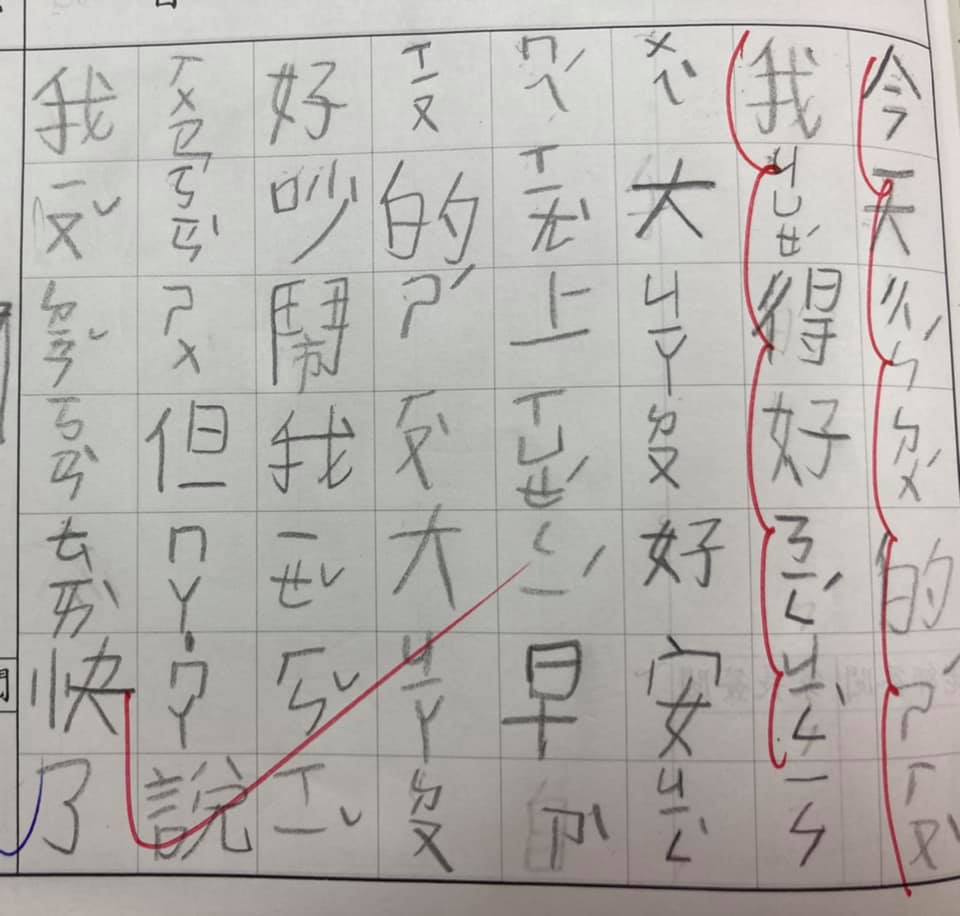 今天的ㄕˊㄏㄡˋ
我ㄐㄩㄝˊ得好ㄋㄧㄥˊㄐㄧㄥˋㄧㄣ
ㄨㄟˋ大ㄐㄧㄚㄉㄡ好安ㄐㄧㄥˋ
ㄇㄟˊㄒㄧㄤˋ上ㄒㄩㄝˊㄑㄧˊ早ㄗˋ
ㄒㄧㄡ的ㄕˊㄏㄡˋ大ㄐㄧㄚㄉㄡ
好吵鬧我ㄧㄝˇㄏㄣˇㄒㄧˇ
ㄏㄨㄢㄎㄢˋㄕㄨ但ㄇㄚㄇㄚ說
我ㄧㄡˇㄉㄧㄢˇㄎㄢˋㄊㄞˋ快了